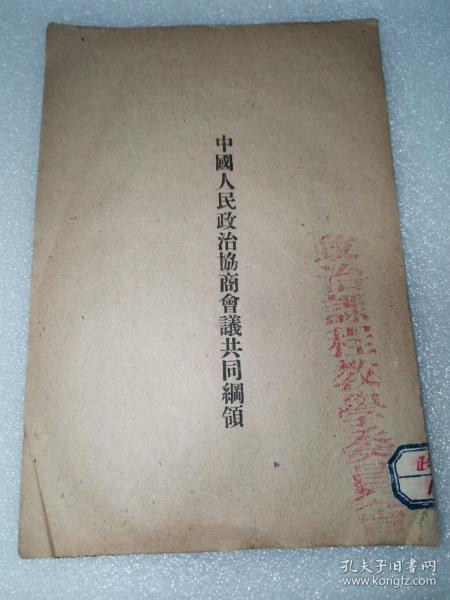 中國人民政治協商會議共同綱領
政治課程教學委員會
政
孔夫子旧书网
www.kongfz.com